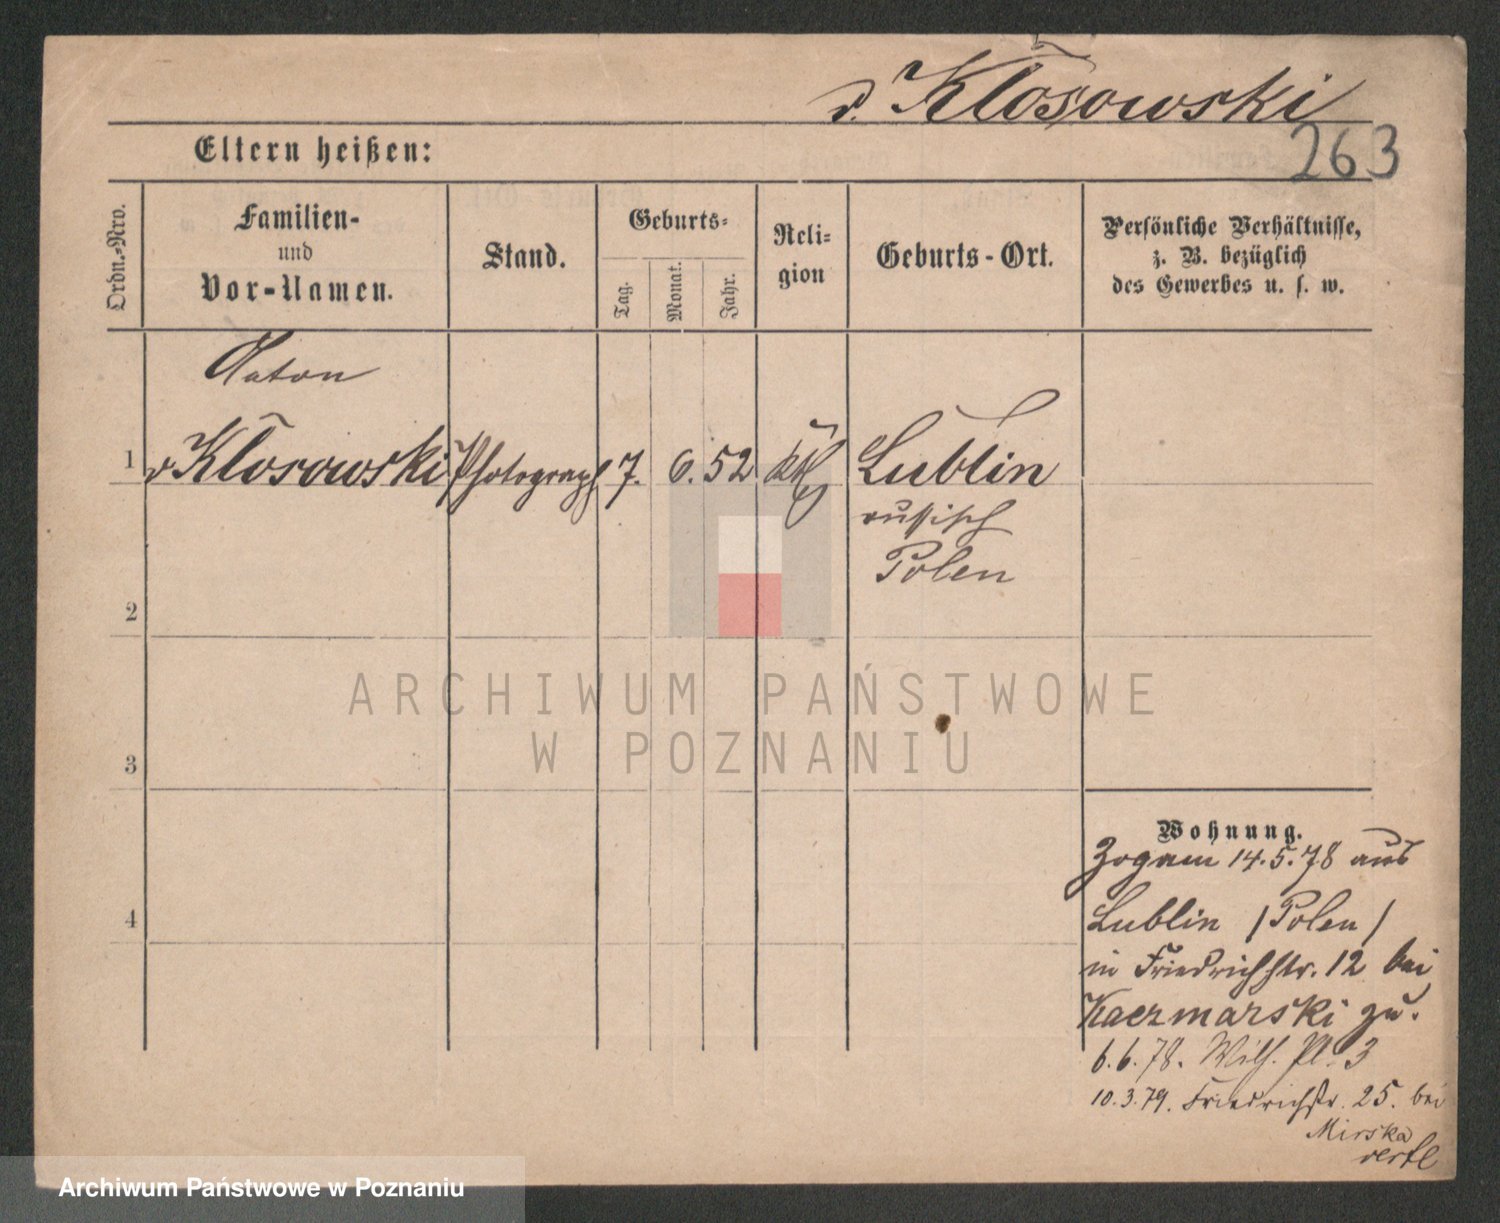 v. Klosowski
263
Eltern heißen:
Ordn.-Nro.
Familien-
und
Vor-Namen.
Stand.
Geburts-
Tag.
Monat.
Jahr.
Reli-
gion
Geburts-Ort.
Persönliche Verhältnisse,
z. B. bezüglich
des Gewerbes u. s. w.
Anton
1 v Klosowski Photograph 7. 6. 52 kth Lublin
russisch
Polen
2
3
4
ARCHIWUM PAŃSTWOWE
W POZNANIU
Wohnung.
Zog am 14.5.78 aus
Lublin /Polen/
in Friedrichstr. 12 bei
Kaczmarski zu.
6.6.78. Wilh. Pl. 3
10.3.79. Friedrichstr. 25. bei
Mirska
Archiwum Państwowe w Poznaniu